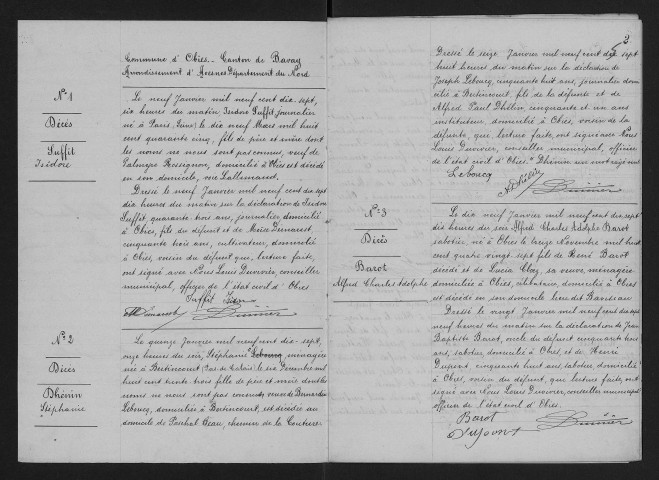 Commune d'Obies. Canton de Bavay
Arrondissement d'Avesnes Département du Nord
N° 1
Décès
Suffit
Isidore
Le neuf Janvier mil neuf cent dix sept,
six heures du matin Isidore Suffit journalier
né à Paris (Seine) le dix neuf Mars mil huit
cent quarante cinq, fils de père et mère dont
les noms ne nous sont pas connus, veuf de
Palmyre Rossignon, domicilié à Obies est décédé
en son domicile, rue Lallemand.
Dressé le neuf Janvier mil neuf cent dix sept
dix heures du matin sur la déclaration de Isidore
Suffit, quarante trois ans, journalier domicilié
à Obies, fils du défunt et de Moïse Dumarest,
cinquante trois ans, cultivateur, domicilié
à Obies, voisin du défunt que, lecture faite,
ont signé avec Nous Louis Duvivier, conseiller
municipal, officier de l'état civil d'Obies
Suffit
N° 2
Décès
Dhénin
Stéphanie
Le quinze Janvier mil neuf cent dix-sept,
onze heures du soir, Stéphanie Lebocq, ménagère
née à Bertincourt (Pas de Calais) le six Décembre mil
huit cent trente trois fille de père et mère dont les
noms ne nous sont pas connus, veuve de Bernardin
Lebocq, domiciliée à Bertincourt, est décédée au
domicile de Paschal Béau, chemin de la Couture.
2
Dressé le seize Janvier mil neuf cent dix sept
huit heures du matin sur la déclaration de
Joseph Lebocq, cinquante huit ans, journalier domi
cilié à Bertincourt, fils de la défunte et de
Alfred Paul Dhénin, cinquante et un ans
instituteur, domicilié à Obies, voisin de la
défunte, que, lecture faite, ont signé avec Nous
Louis Duvivier, conseiller municipal, officier
de l'état civil d'Obies. Dhénin un mot rayé nul
Lebocq
Duvivier
N° 3
Décès
Barot
Alfred Charles Adolphe
Le dix neuf Janvier mil neuf cent dix sept
dix heures du soir Alfred Charles Adolphe Barot
sabotier, né à Obies le treize Novembre mil huit
cent quatre vingt sept fils de René Barot
décédé et de Lucia sa veuve, ménagère
domiciliée à Obies, célibataire, domicilié à Obies
est décédé en son domicile lieu dit
Dressé le vingt Janvier mil neuf cent dix sept
neuf heures du matin sur la déclaration de Jean
Baptiste Barot, oncle du défunt cinquante trois
ans, sabotier, domicilié à Obies, et de Henri
Dupont cinquante huit ans, sabotier, domicilié
à Obies, voisin du défunt, que lecture faite, ont
signé avec Nous Louis Duvivier, conseiller municipal
officier de l'état civil d'Obies.
Barot
Dupont Duvivier